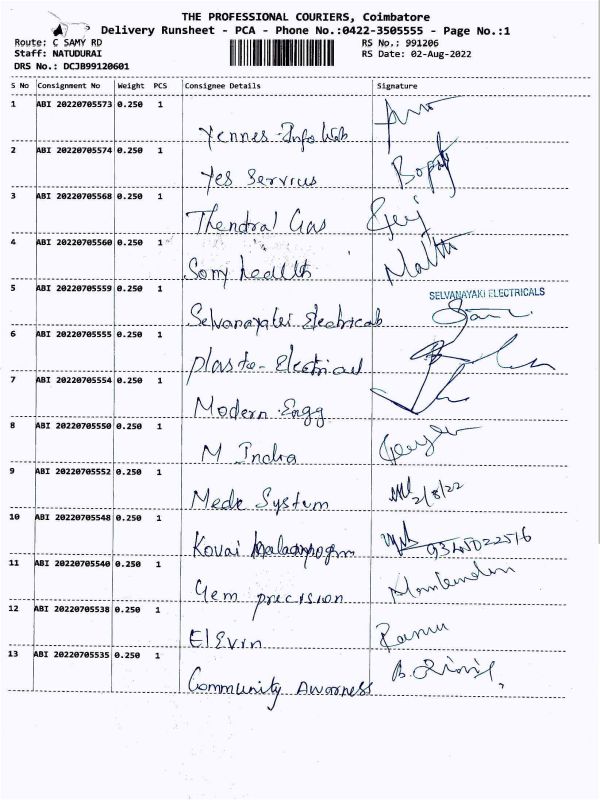 THE PROFESSIONAL COURIERS, Coimbatore
Delivery Runsheet - PCA - Phone No.:0422-3505555 - Page No.:1
Route: C SAMY RD RS No.: 991206
Staff: NATUDURAI RS Date: 02-Aug-2022
DRS No.: DCJB99120601
S No Consignment No Weight PCS Consignee Details Signature
1 ABI 20220705573 0.250 1
Yennes-Info Web
2 ABI 20220705574 0.250 1
Yes Servius
3 ABI 20220705568 0.250 1
Thendral Gas
4 ABI 20220705560 0.250 1
Somy health
5 ABI 20220705559 0.250 1 SELVANAYAKI ELECTRICALS
Electricals
6 ABI 20220705555 0.250 1
Electrical
7 ABI 20220705554 0.250 1
Modern Engg
8 ABI 20220705550 0.250 1
M Indra
9 ABI 20220705552 0.250 1 2/8/22
Mede System
10 ABI 20220705548 0.250 1
Kovai
11 ABI 20220705540 0.250 1
Gem precision
12 ABI 20220705538 0.250 1
Elevin
13 ABI 20220705535 0.250 1
Community Awarness